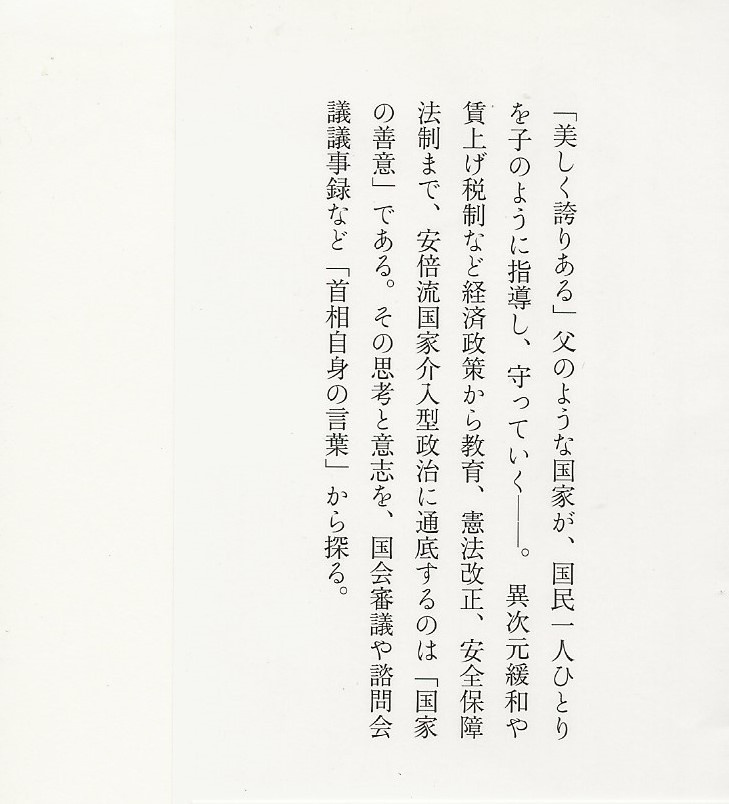 「美しく誇りある」父のような国家が、国民一人ひとり
を子のように指導し、守っていく――。異次元緩和や
賃上げ税制など経済政策から教育、憲法改正、安全保障
法制まで、安倍流国家介入型政治に通底するのは「国家
の善意」である。その思考と意志を、国会審議や諮問会
議議事録など「首相自身の言葉」から探る。